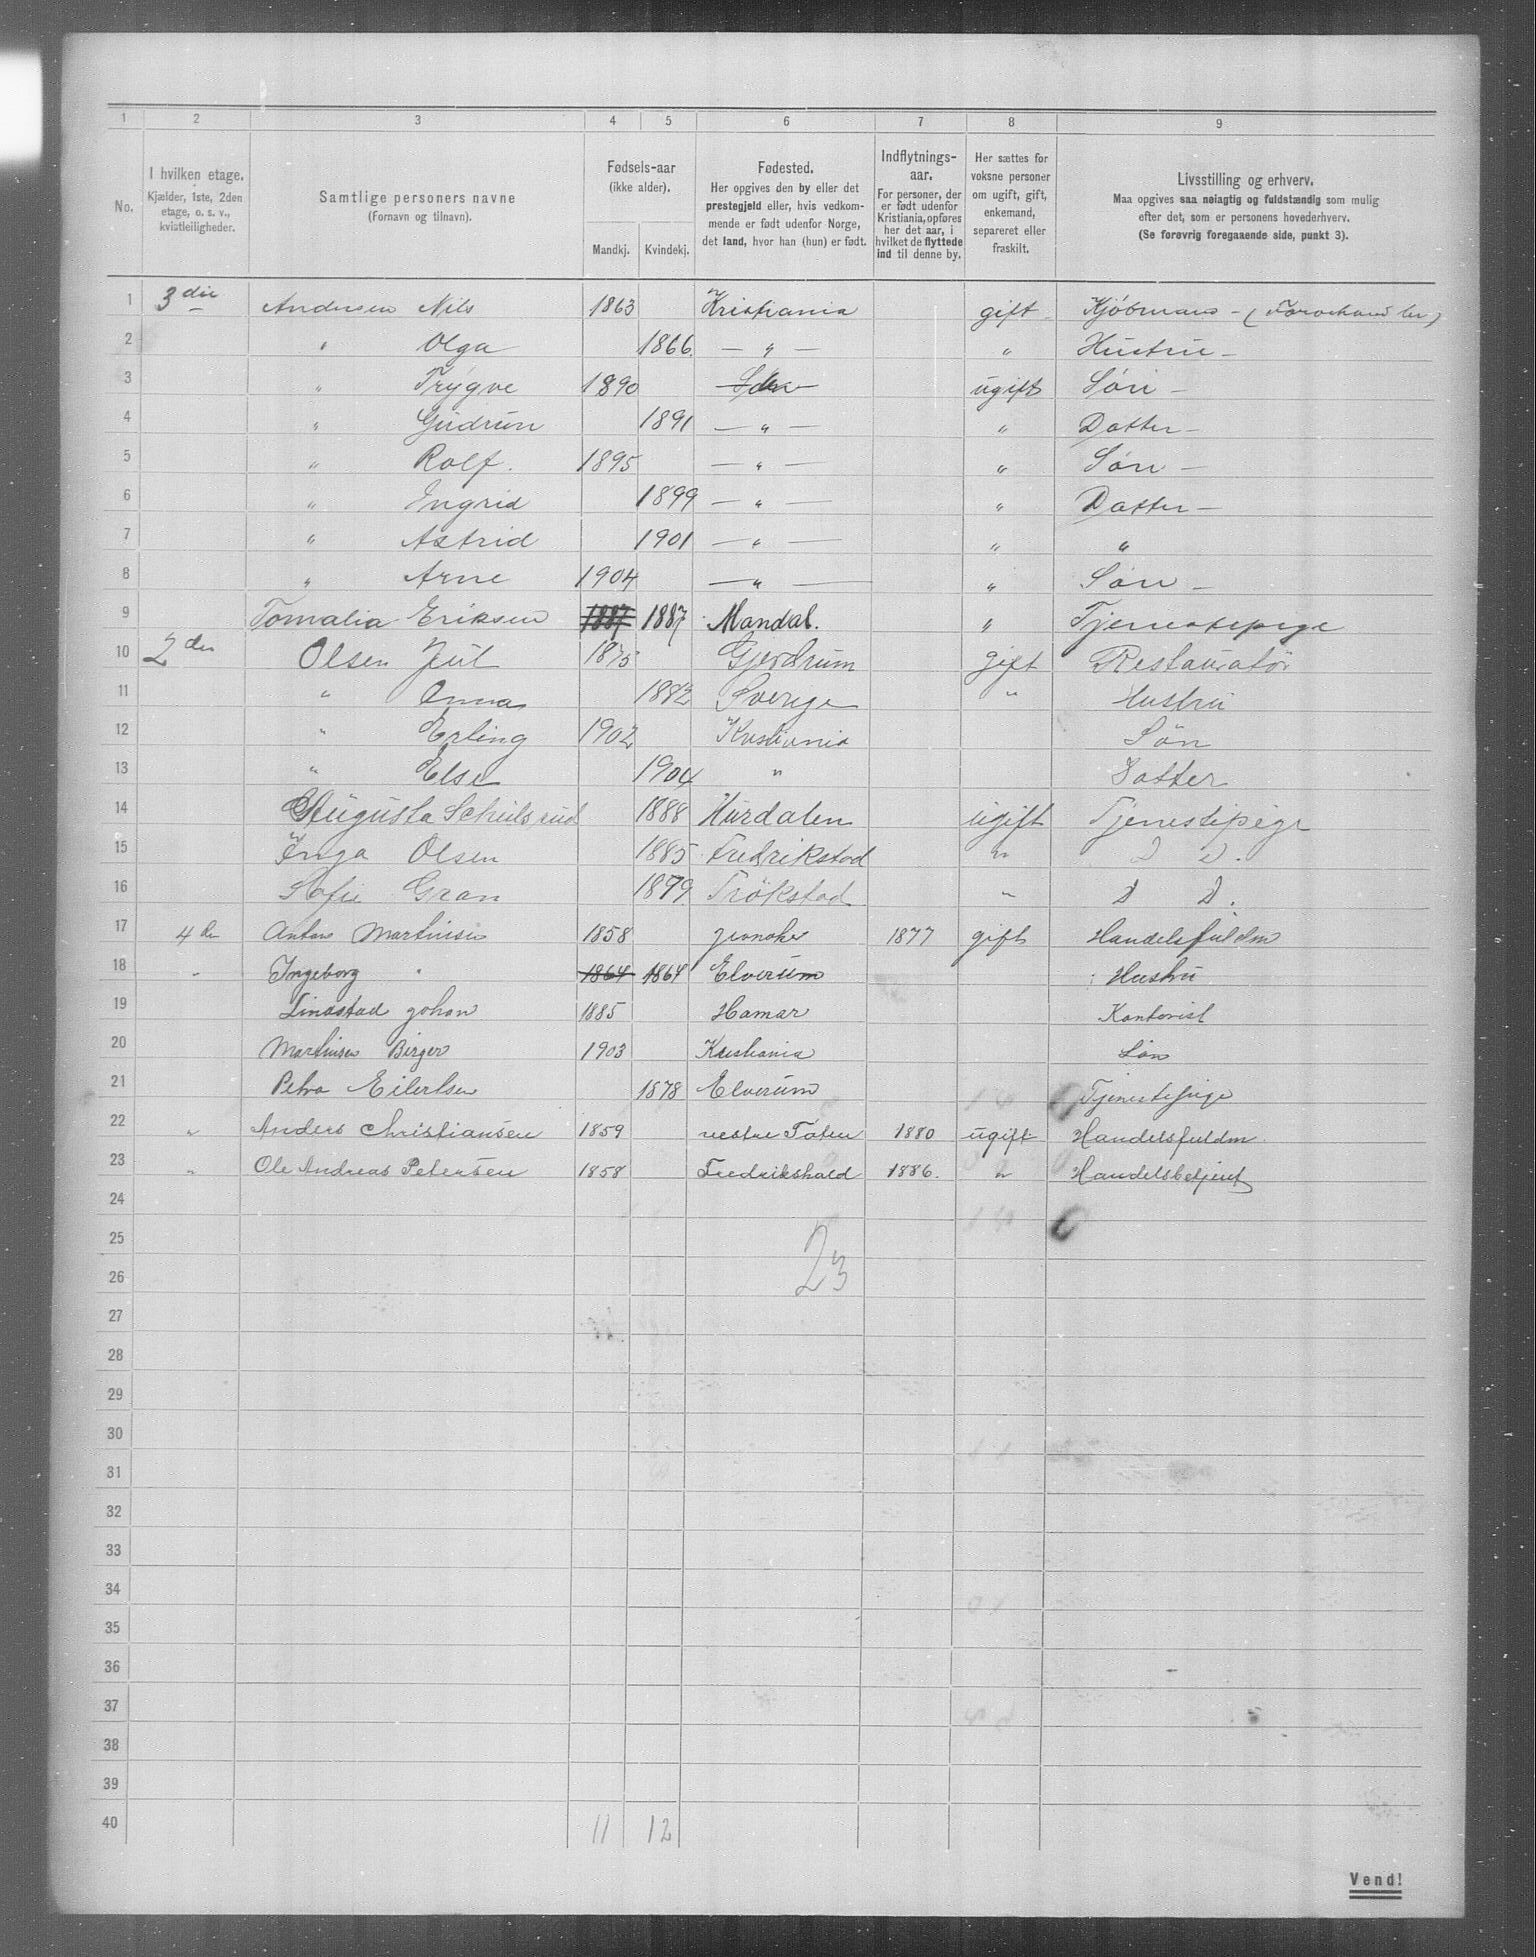 1 2 3 4 5 6 7 8 9
No.
I hvilken etage.
Kjælder, 1ste, 2den
etage, o. s. v.,
kvistleiligheder.
Samtlige personers navne
(Fornavn og tilnavn).
Fødsels-aar
(ikke alder).
Mandkj. Kvindekj.
Fødested.
Her opgives den by eller det
prestegjeld eller, hvis vedkom-
mende er født udenfor Norge,
det land, hvor han (hun) er født.
Indflytnings-
aar.
For personer, der
er født udenfor
Kristiania, opføres
her det aar, i
hvilket de flyttede
ind til denne by.
Her sættes for
voksne personer
om ugift, gift,
enkemand,
separeret eller
fraskilt.
Livsstilling og erhverv.
Maa opgives saa nøiagtig og fuldstændig som mulig
efter det, som er personens hovederhverv.
(Se forøvrig foregaaende side, punkt 3).
1 3die Andersen Nils 1863 Kristiania gift Kjøbmand - (Farvehandler)
2 " Olga 1866. — " — " Hustru —
3 " Trygve 1890 ugift Søn —
4 " Gudrun 1891 — " — " Datter —
5 " Rolf. 1895 — " — " Søn —
6 " Ingrid 1899 — " — " Datter —
7 " Astrid 1901 — " — " "
8 " Arne 1904 — " — " Søn —
9 Tomalia Eriksen 1887 1887 Mandal. " Tjenestepige
10 2den Olsen Jul 1875 Gjerdrum gift Restauratör
11 " Anna 1882 Sverige " Hustru
12 " Erling 1902 Kristiania Sön
13 " Else 1904 " Datter
14 Augusta Schulsrud 1888 Hurdalen ugift Tjenestepige
15 Inga Olsen 1885 Fredrikstad " D D.
16 Sofie Gran 1879 Trökstad " D D.
17 4de Anton Martinsen 1858 1877 gift Handelsfuldm
18 " Ingeborg " 1864 1864 Elverum Hustru
19 Lindstad Johan 1885 Hamar Kontorist
20 Martinsen Birger 1903 Kristiania Søn
21 Petra Eilertsen 1878 Elverum Tjenestepige
22 " Anders Christiansen 1859 vestre Toten 1880 ugift Handelsfuldm
23 " Ole Andreas Petersen 1858 Fredrikshald 1886. " Handelsbetjent
24
25
26 23
27
28
29
30
31
32
33
34
35
36
37
38
39
40 11 12
Vend!